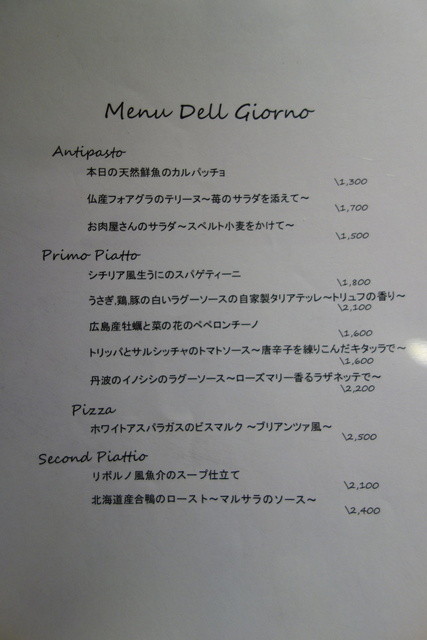 Menu Dell Giorno
Antipasto
本日の天然鮮魚のカルパッチョ
\1,300
仏産フォアグラのテリーヌ～苺のサラダを添えて～
\1,700
お肉屋さんのサラダ～スペルト小麦をかけて～
\1,500
Primo Piatto
シチリア風生うにのスパゲティーニ
\1,800
うさぎ,鶏,豚の白いラグーソースの自家製タリアテッレ～トリュフの香り～
\2,100
広島産牡蠣と菜の花のペペロンチーノ
\1,600
トリッパとサルシッチャのトマトソース～唐辛子を練りこんだキタッラで～
\1,600
丹波のイノシシのラグーソース～ローズマリー香るラザネッテで～
\2,200
Pizza
ホワイトアスパラガスのビスマルク ～ブリアンツァ風～
\2,500
Second Piattio
リボルノ風魚介のスープ仕立て
\2,100
北海道産合鴨のロースト～マルサラのソース～
\2,400